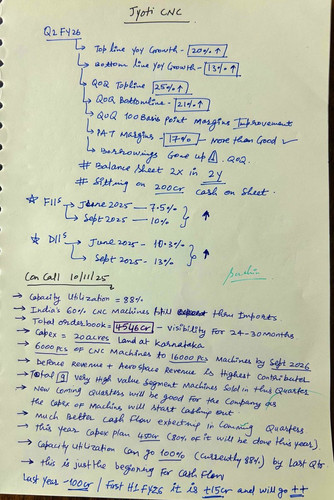 Jyoti CNC
Q2 FY26
→ Top line YoY Growth - 20% ↑
→ Bottom line YoY Growth - 13% ↑
→ QoQ Topline 25% ↑
→ QoQ Bottomline - 21% ↑
→ QoQ 100 Basis Point Margins Improvement
→ PAT Margins - 17% - more than Good ✓
→ Borrowings Gone up ⚠ QoQ.
# Balance Sheet 2X in 2Y
# Sitting on 200cr Cash on Sheet.
☆ FIIs → June 2025 - 7.5%
→ Sept 2025 - 10% ↑
☆ DIIs → June 2025 - 10.3%
→ Sept 2025 - 13% ↑
Con Call 10/11/25
→ Capacity Utilization = 88%
→ India's 60% CNC Machines still thru Imports
→ Total orderbook = 4546cr - Visibility for 24-30 months
→ Capex = 20 acres land at Karnataka
→ 6000 pcs of CNC Machines to 16000 pcs Machines by Sept 2026
→ Defence Revenue + Aerospace Revenue is Highest Contributer
→ Total 9 Very High value Segment Machines Sold in this Quarter
→ New Coming Quarters will be good for the Company as
the Capex of Machines will start Cashing out
→ Much Better Cash Flow expecting in Coming Quarters
→ this year Capex Plan 450cr (80% of it will be done this year)
→ Capacity Utilization Can go 100% (Currently 88%) by Last Qtr
→ this is just the beginning for Cash Flow
Last Year -100cr / First H1 FY26 it is +15cr and will go ++